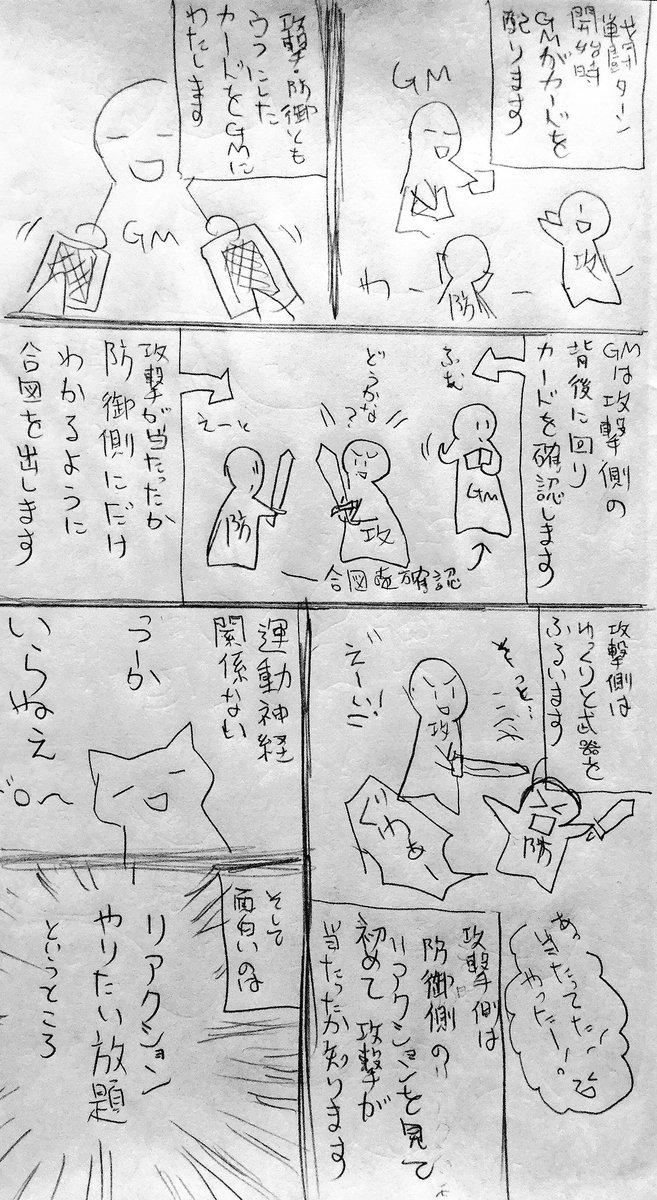 戦闘ターン
開始時
GMがカードを
配ります
GM
攻
防
わー
攻撃・防御とも
カードをGMに
わたします
GM
GMは攻撃側の
背後に回り
カードを確認します
ふむ
GM
どうかな?
攻
合図を確認
えーと
防
攻撃が当たったか
防御側にだけ
わかるように
合図を出します
攻撃側は
ゆっくりと武器を
ふるいます
そっと…
えーい!
攻
防
ぐわぁー
あっ
当たってた!
やったー!
攻撃側は
防御側の
リアクションを見て
初めて攻撃が
当たったか知ります
運動神経
関係ない
づーか
いらねえ
そして
面白いのは
リアクション
やりたい放題
というところ